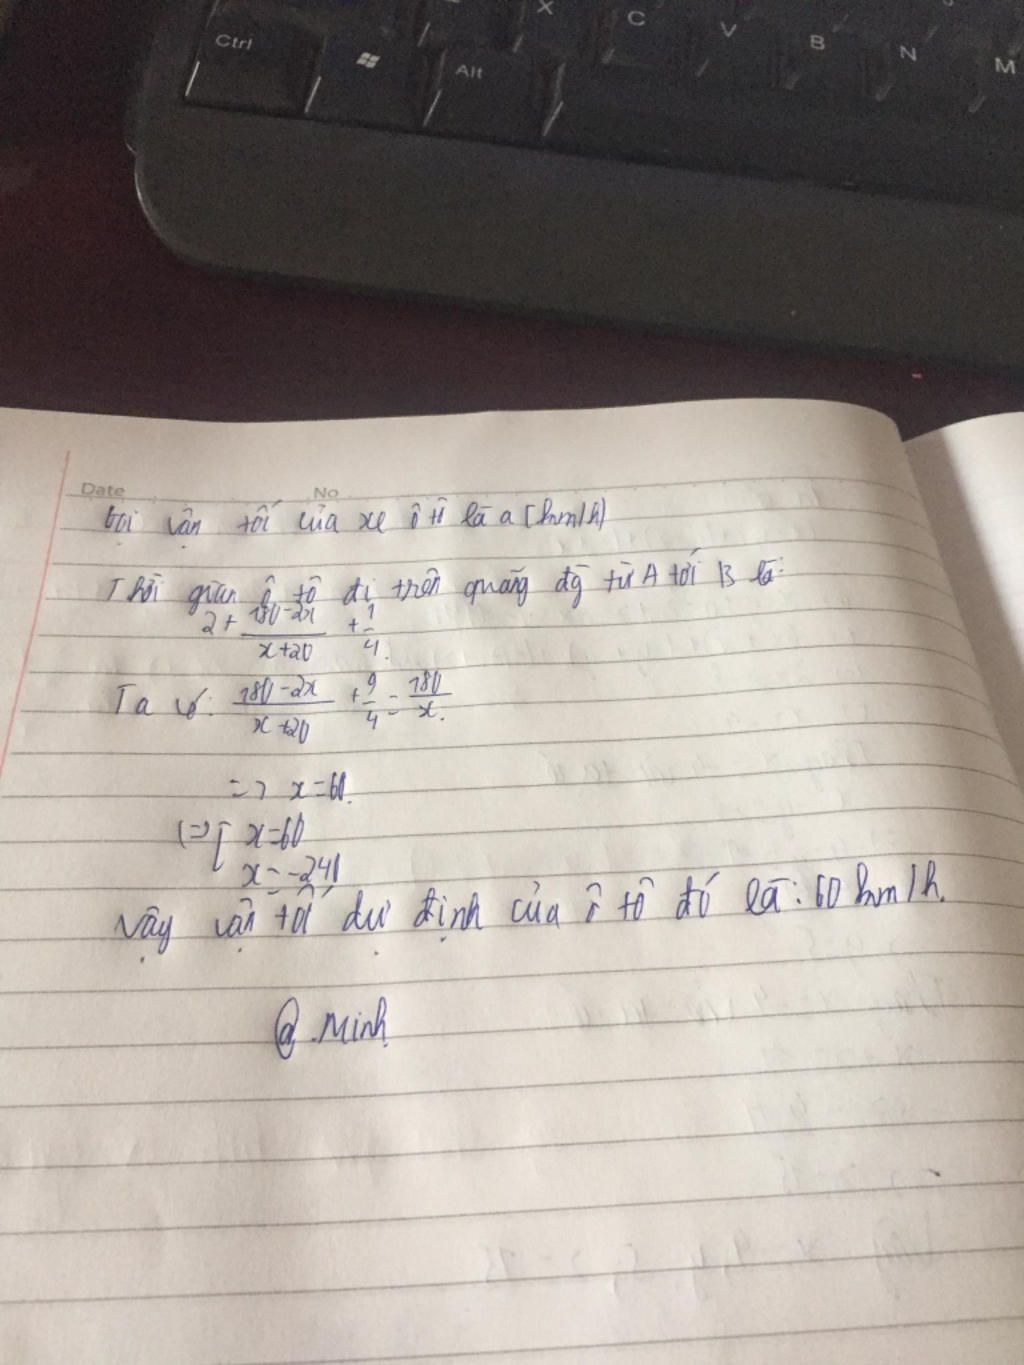 Ctrl
Alt
X C V B N M
Date No
Gọi vận tốc của xe ô tô là a (km/h)
Thời gian ô tô đi trên quãng đg từ A tới B là:
2 + (180-2x)/(x+20) + 1/4.
Ta có: (180-2x)/(x+20) + 9/4 = 180/x.
=> x=60.
(=>[ x=60
x=-240
Vậy vận tốc dự định của ô tô đó là: 60 km/h.
@.Minh